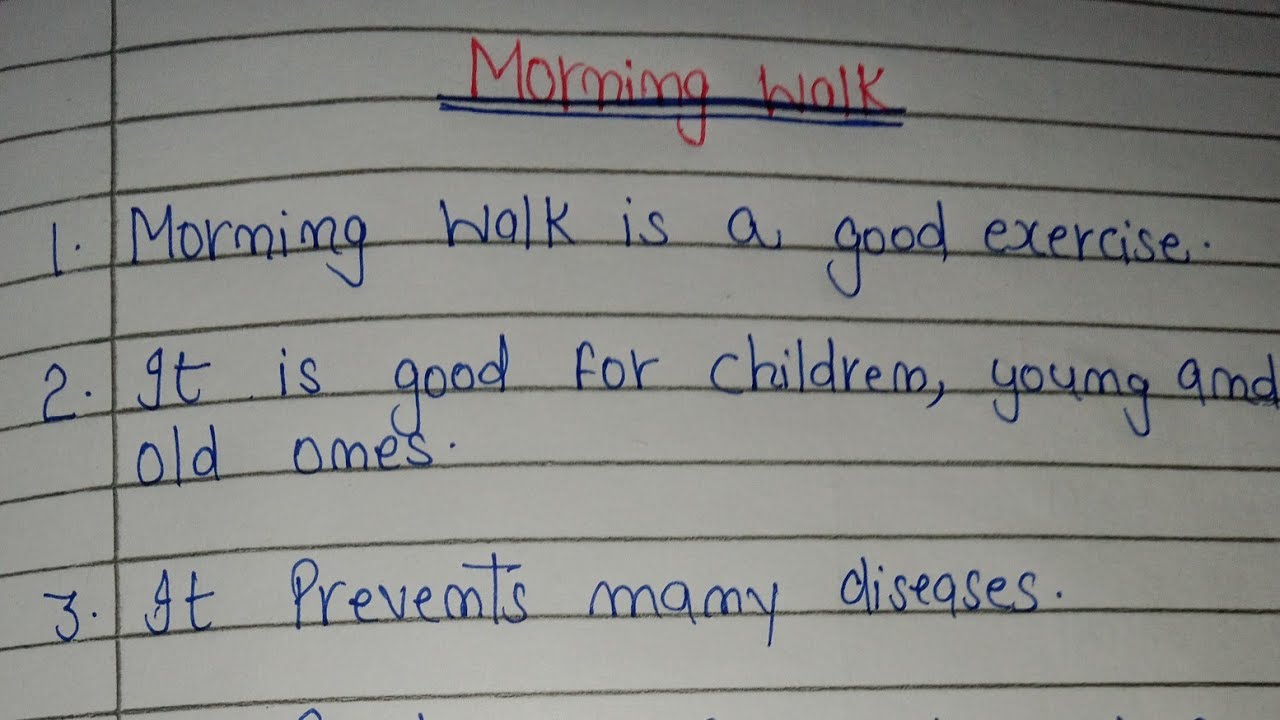 Morning Walk
1. Morning Walk is a good exercise.
2. It is good for children, young and
old ones.
3. It Prevents many diseases.